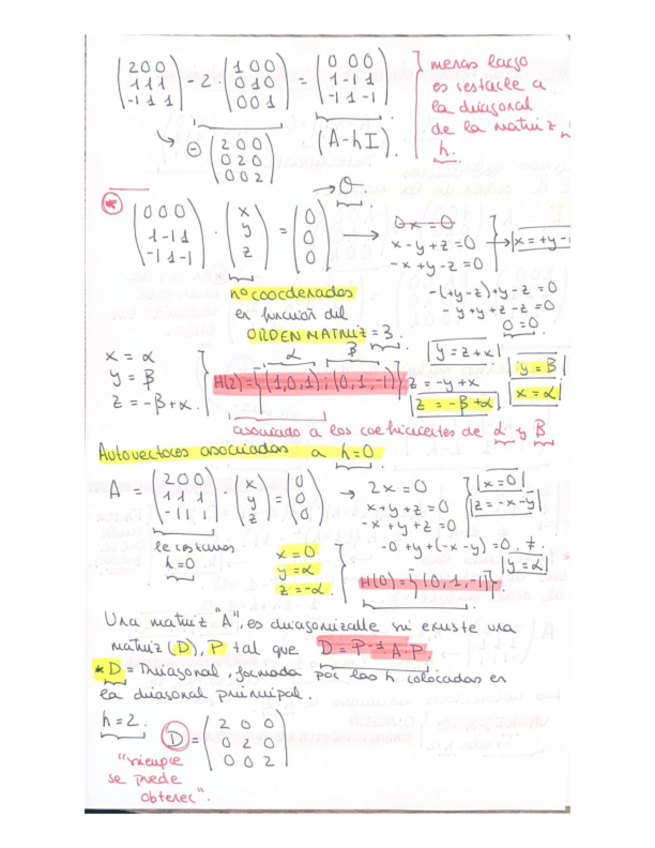 (2 0 0 / 1 1 1 / -1 1 1) - 2 · (1 0 0 / 0 1 0 / 0 0 1) = (0 0 0 / 1 -1 1 / -1 1 -1)
menos largo
es restarle a
la diagonal
de la matriz
h.
↳ ⊖ (2 0 0 / 0 2 0 / 0 0 2)
(A-hI).
→ 0.
* (0 0 0 / 1 -1 1 / -1 1 -1) · (x / y / z) = (0 / 0 / 0) →
0x=0
x-y+z=0 → x=+y-
-x+y-z=0
nº coordenadas
en función del
ORDEN MATRIZ=3.
-(+y-z)+y-z=0
-y+y+z-z=0
0=0.
x=α
y=β
z=-β+α.
α β
H(2)={(1,0,1);(0,1,-1)}
y=z+x
z=-y+x
z=-β+α
y=β
x=α
asociado a los coeficientes de α y β
Autovectores asociados a h=0
A = (2 0 0 / 1 1 1 / -1 1 1) · (x / y / z) = (0 / 0 / 0) →
2x=0
x+y+z=0
-x+y+z=0
x=0
z=-x-y
-0+y+(-x-y)=0.
y=α
le restamos
h=0
x=0
y=α
z=-α
H(0)={(0,1,-1)}.
Una matriz "A", es diagonizable si existe una
matriz (D), P tal que D=P-1.A.P.
* D = Diagonal, formada por las h colocadas en
la diagonal principal.
h=2. D = (2 0 0 / 0 2 0 / 0 0 2)
"siempre
se puede
obtener".